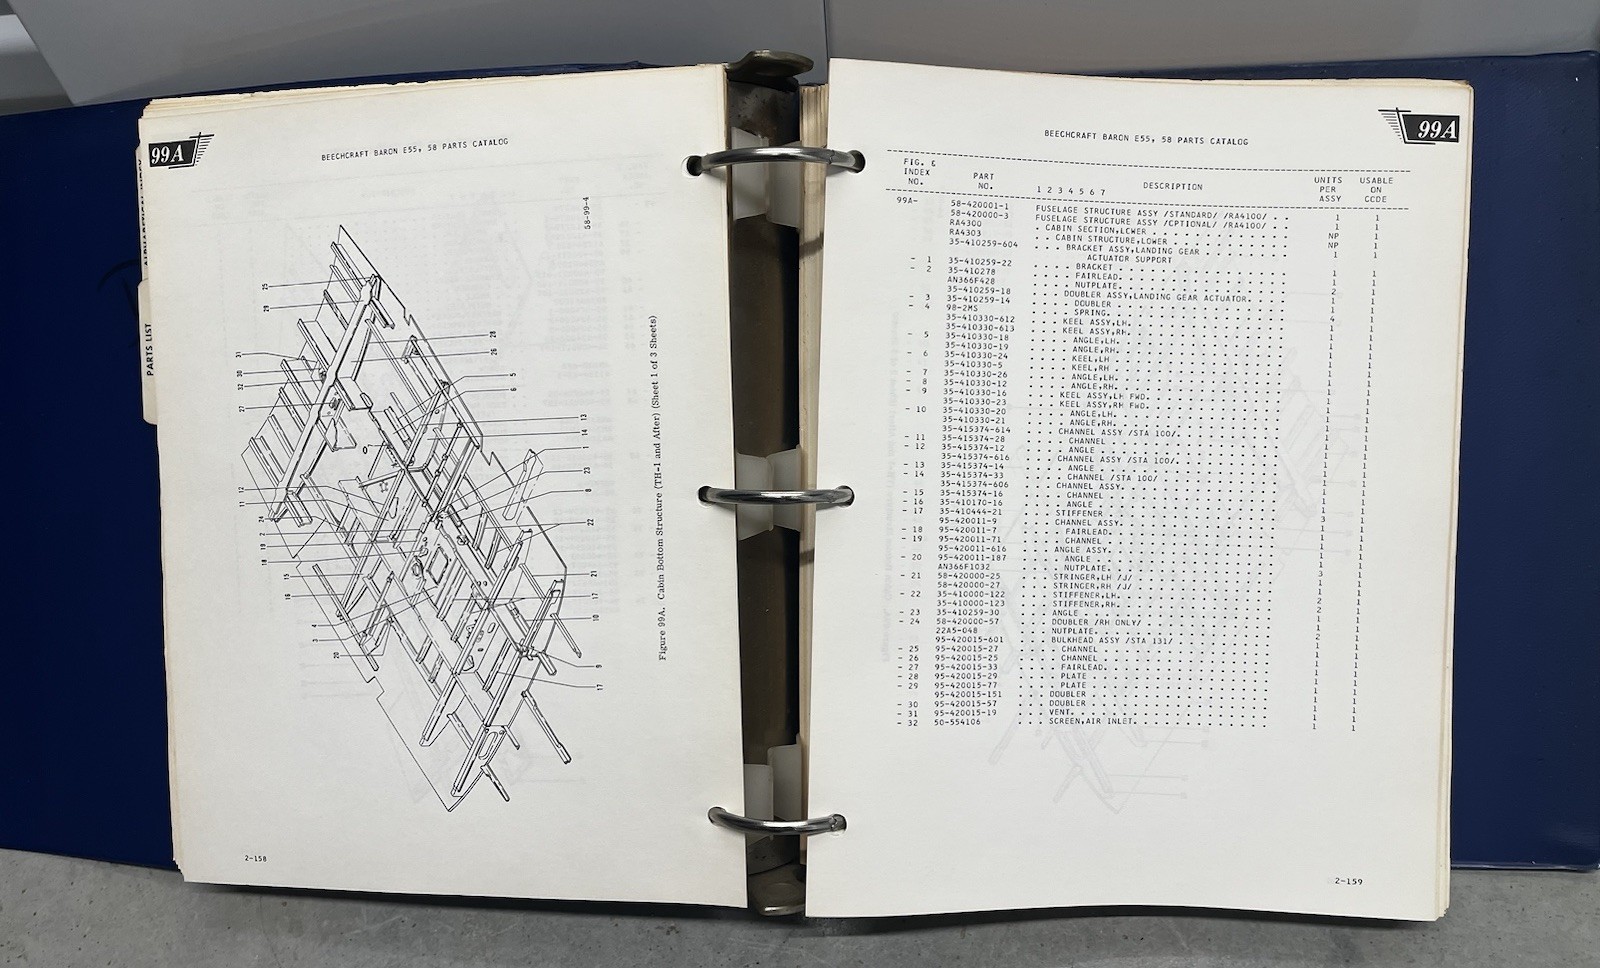 99A
BEECHCRAFT BARON E55, 58 PARTS CATALOG
PARTS LIST
58-99-4
25
29
31
30
32
27
12
11
24
2
19
18
15
16
4
3
20
28
26
5
6
13
14
1
23
8
22
21
17
10
9
17
Figure 99A. Cabin Bottom Structure (TH-1 and After) (Sheet 1 of 3 Sheets)
2-158
99A
BEECHCRAFT BARON E55, 58 PARTS CATALOG
FIG. & INDEX NO. PART NO. 1 2 3 4 5 6 7 DESCRIPTION UNITS PER ASSY USABLE ON CODE
99A- 58-420001-1 FUSELAGE STRUCTURE ASSY /STANDARD/ /RA4100/ . . 1 1
58-420000-3 FUSELAGE STRUCTURE ASSY /OPTIONAL/ /RA4100/ . . 1 1
RA4300 . CABIN SECTION,LOWER . . . NP 1
RA4303 . . CABIN STRUCTURE,LOWER . . . NP 1
35-410259-604 . . . BRACKET ASSY,LANDING GEAR ACTUATOR SUPPORT 1 1
- 1 35-410259-22 . . . . BRACKET . . . 1 1
- 2 35-410278 . . . . FAIRLEAD. . . . 1 1
AN366F428 . . . . NUTPLATE. . . . 2 1
35-410259-18 . . . DOUBLER ASSY,LANDING GEAR ACTUATOR. 1 1
- 3 35-410259-14 . . . . DOUBLER . . . 1 1
- 4 98-2MS . . . . SPRING. . . . 4 1
35-410330-612 . . . KEEL ASSY,LH. . . . 1 1
35-410330-613 . . . KEEL ASSY,RH. . . . 1 1
- 5 35-410330-18 . . . . ANGLE,LH. . . . 1 1
35-410330-19 . . . . ANGLE,RH. . . . 1 1
- 6 35-410330-24 . . . . KEEL,LH . . . 1 1
35-410330-5 . . . . KEEL,RH . . . 1 1
- 7 35-410330-26 . . . . ANGLE,LH. . . . 1 1
- 8 35-410330-12 . . . . ANGLE,RH. . . . 1 1
- 9 35-410330-16 . . . KEEL ASSY,LH FWD. . . . 1 1
35-410330-23 . . . KEEL ASSY,RH FWD. . . . 1 1
- 10 35-410330-20 . . . . ANGLE,LH. . . . 1 1
35-410330-21 . . . . ANGLE,RH. . . . 1 1
35-415374-614 . . . CHANNEL ASSY /STA 100/. . . . 1 1
- 11 35-415374-28 . . . . CHANNEL . . . 1 1
- 12 35-415374-12 . . . . ANGLE . . . 1 1
35-415374-616 . . . CHANNEL ASSY /STA 100/. . . . 1 1
- 13 35-415374-14 . . . . ANGLE . . . 1 1
- 14 35-415374-33 . . . . CHANNEL /STA 100/ . . . 1 1
35-415374-606 . . . CHANNEL ASSY. . . . 1 1
- 15 35-415374-16 . . . . CHANNEL . . . 1 1
- 16 35-410170-16 . . . . ANGLE . . . 1 1
- 17 35-410444-21 . . . STIFFENER . . . 3 1
95-420011-9 . . . CHANNEL ASSY. . . . 1 1
- 18 95-420011-7 . . . . FAIRLEAD. . . . 1 1
- 19 95-420011-71 . . . . CHANNEL . . . 1 1
95-420011-616 . . . ANGLE ASSY. . . . 1 1
- 20 95-420011-187 . . . . ANGLE . . . 1 1
AN366F1032 . . . . NUTPLATE. . . . 3 1
- 21 58-420000-25 . . . STRINGER,LH /J/ . . . 1 1
58-420000-27 . . . STRINGER,RH /J/ . . . 1 1
- 22 35-410000-122 . . . STIFFENER,LH. . . . 2 1
35-410000-123 . . . STIFFENER,RH. . . . 2 1
- 23 35-410259-30 . . . ANGLE . . . 1 1
- 24 58-420000-57 . . . DOUBLER /RH ONLY/ . . . 1 1
22A5-048 . . . NUTPLATE. . . . 2 1
95-420015-601 . . . BULKHEAD ASSY /STA 131/ . . . 1 1
- 25 95-420015-27 . . . . CHANNEL . . . 1 1
- 26 95-420015-25 . . . . CHANNEL . . . 1 1
- 27 95-420015-33 . . . . FAIRLEAD. . . . 1 1
- 28 95-420015-29 . . . . PLATE . . . 1 1
- 29 95-420015-77 . . . . PLATE . . . 1 1
95-420015-151 . . . DOUBLER . . . 1 1
- 30 95-420015-57 . . . DOUBLER . . . 1 1
- 31 95-420015-19 . . . VENT. . . . 1 1
- 32 50-554106 . . . SCREEN,AIR INLET. . . . 1 1
2-159